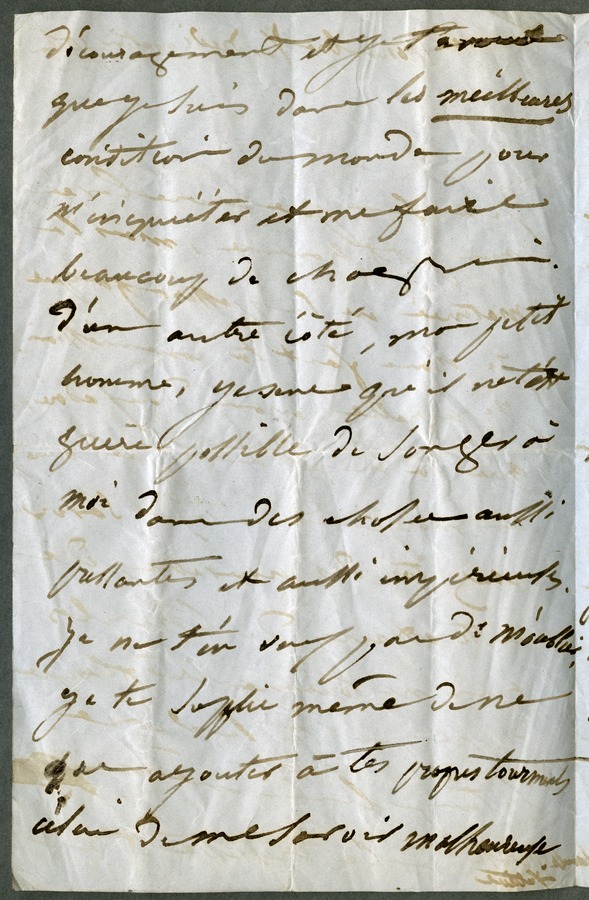 découragement et je t'avoue
que je suis dans les meilleures
conditions du monde pour
m'inquiéter et me faire
beaucoup de chagrin.
D'un autre côté, mon petit
homme, je sens qu'il ne t'est
guère possible de songer à
moi dans des choses aussi
pressantes et aussi impérieuses.
Je ne t'en veux pas de m'oublier,
je te supplie même de ne
pas ajouter à tes propres tourments
celui de me savoir malheureuse